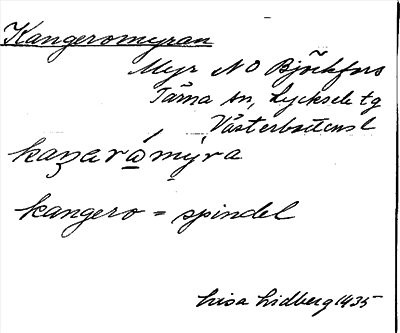 Kangeromyran
Myr NO Björkfors
Tärna sn, Lycksele tg
Västerbottens l
kaŋarámýra
kangero = spindel
Lisa Lidberg 1935